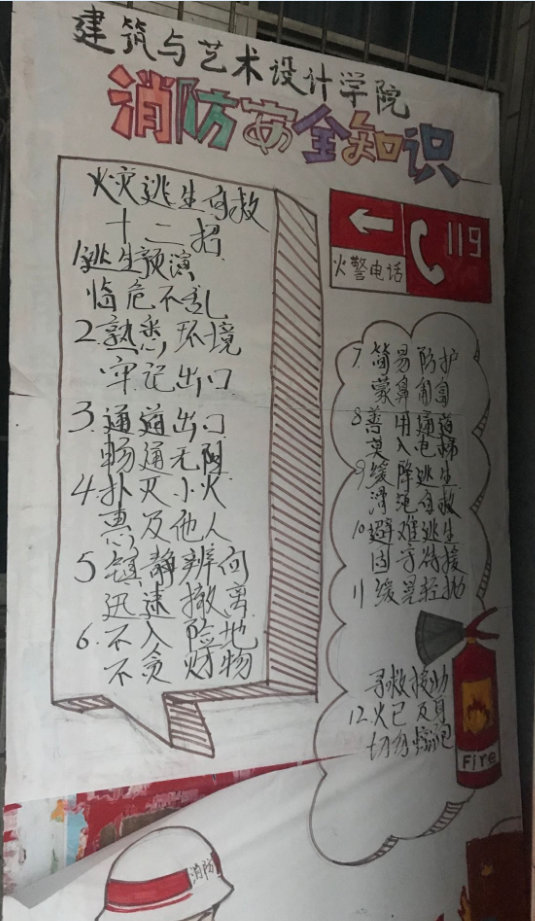 建筑与艺术设计学院
消防安全知识
火灾逃生自救
十二招
1.逃生预演
临危不乱
2.熟悉环境
牢记出口
3.通道出口
畅通无阻
4.扑灭小火
惠及他人
5.镇静辨向
迅速撤离
6.不入险地
不贪财物
119
火警电话
7.简易防护
蒙鼻匍匐
8.善用通道
莫入电梯
9.缓降逃生
滑绳自救
10.避难逃生
固守待援
11.缓晃轻抛
寻救援助
12.火已及身
切勿惊跑
Fire
消防